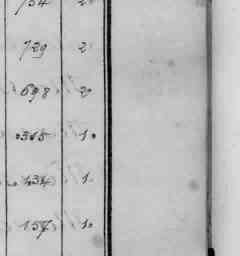 734 2
729 2
698 2
315 1
134 1
157 1